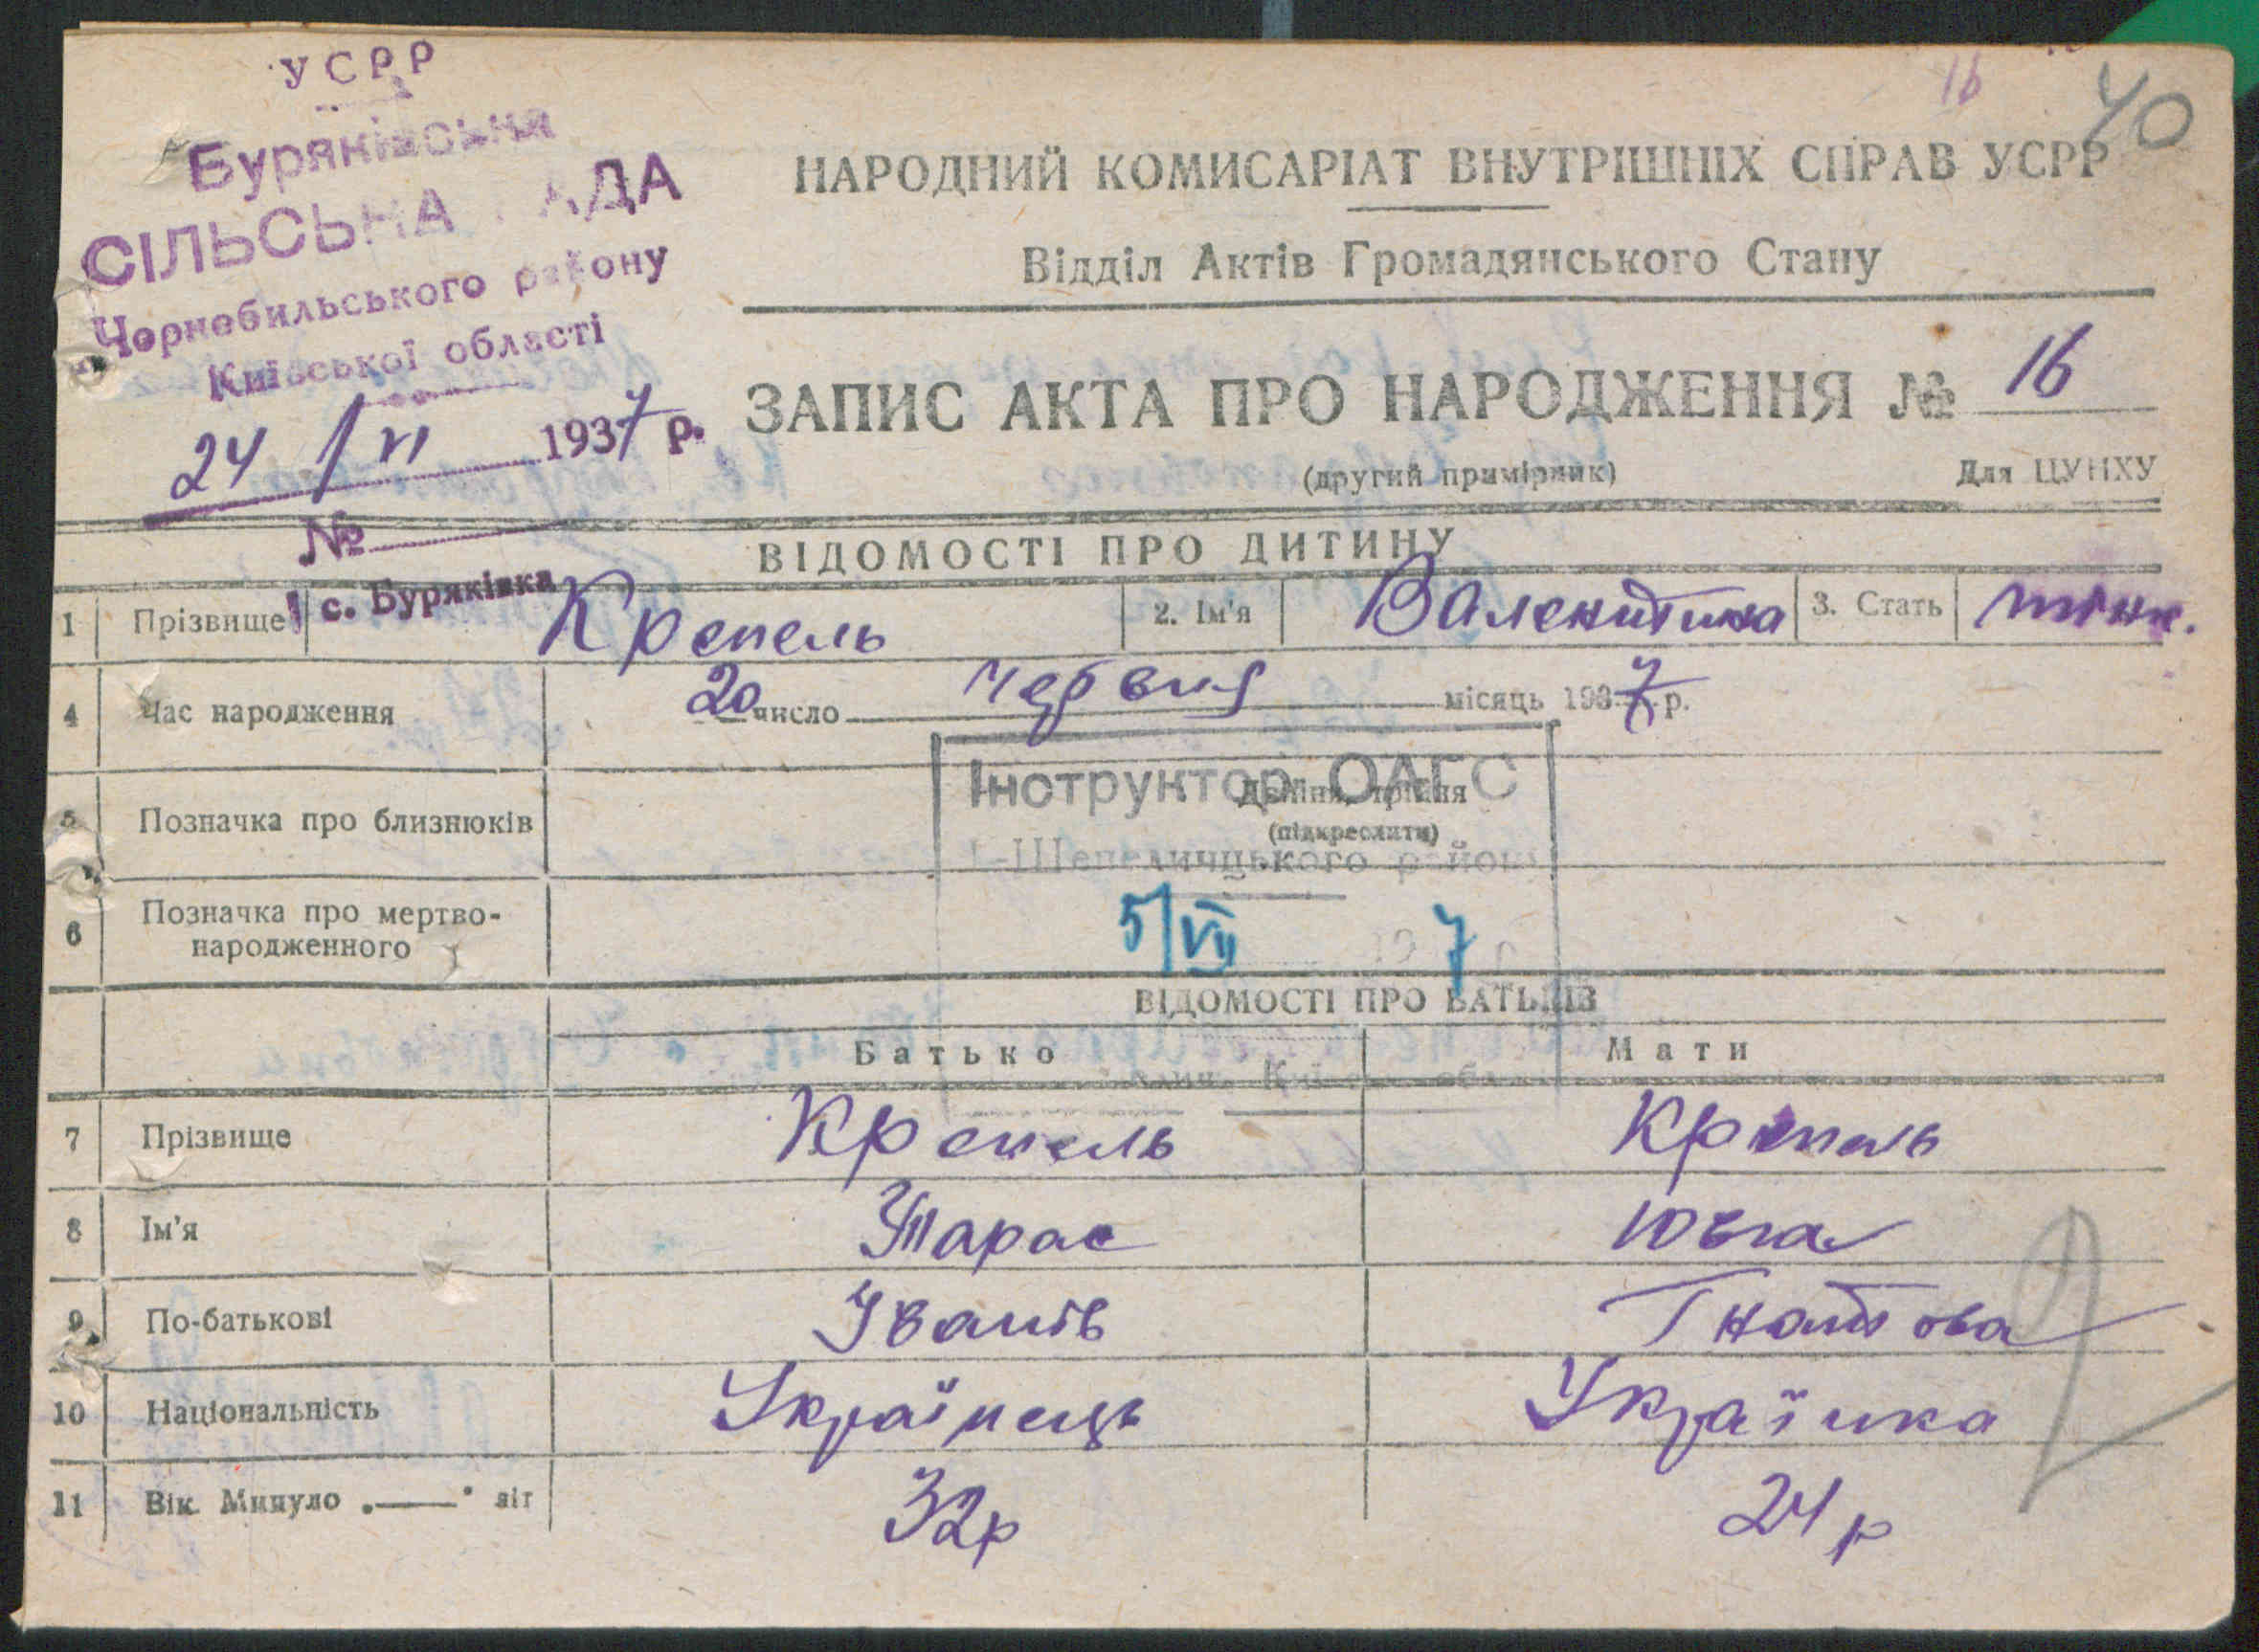 УСРР
Буряківська
СІЛЬСЬНА РАДА
Чорнобильського району
Київської області
24/VI 1937 р.
№
с. Буряківка
16
40
НАРОДНИЙ КОМИСАРІАТ ВНУТРІШНІХ СПРАВ УСРР
Відділ Актів Громадянського Стану
ЗАПИС АКТА ПРО НАРОДЖЕННЯ № 16
(другий примірник) Для ЦУНХУ
ВІДОМОСТІ ПРО ДИТИНУ
1 Прізвище Крепель 2. Ім'я Валентина 3. Стать жінк.
4 Час народження 20 число червня місяць 1937 р.
Інструктор ОАГС
5 Позначка про близнюків Двійня, трійня
(підкреслити)
Шепелицького району
6 Позначка про мертво-
народженного
5/VII 7
ВІДОМОСТІ ПРО БАТЬКІВ
Батько Мати
7 Прізвище Крепель Крепель
8 Ім'я Тарас Ювга
9 По-батькові Іванів Гнатова
10 Національність Українець Українка
11 Вік. Минуло „—" літ 32р 24р
2